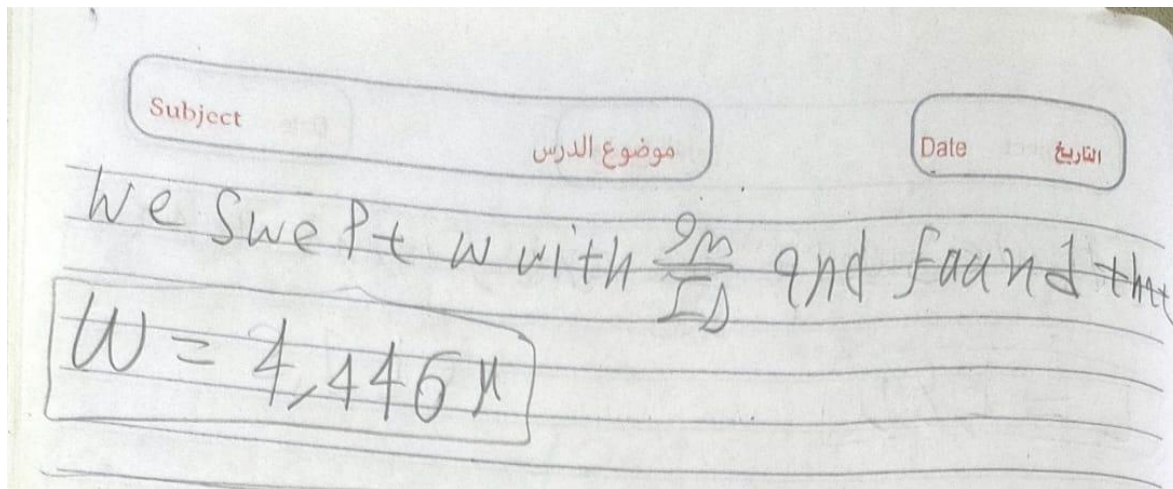 Subject
موضوع الدرس
Date
التاريخ
We Swept W with gm/ID and faund that
W = 4,446 μ